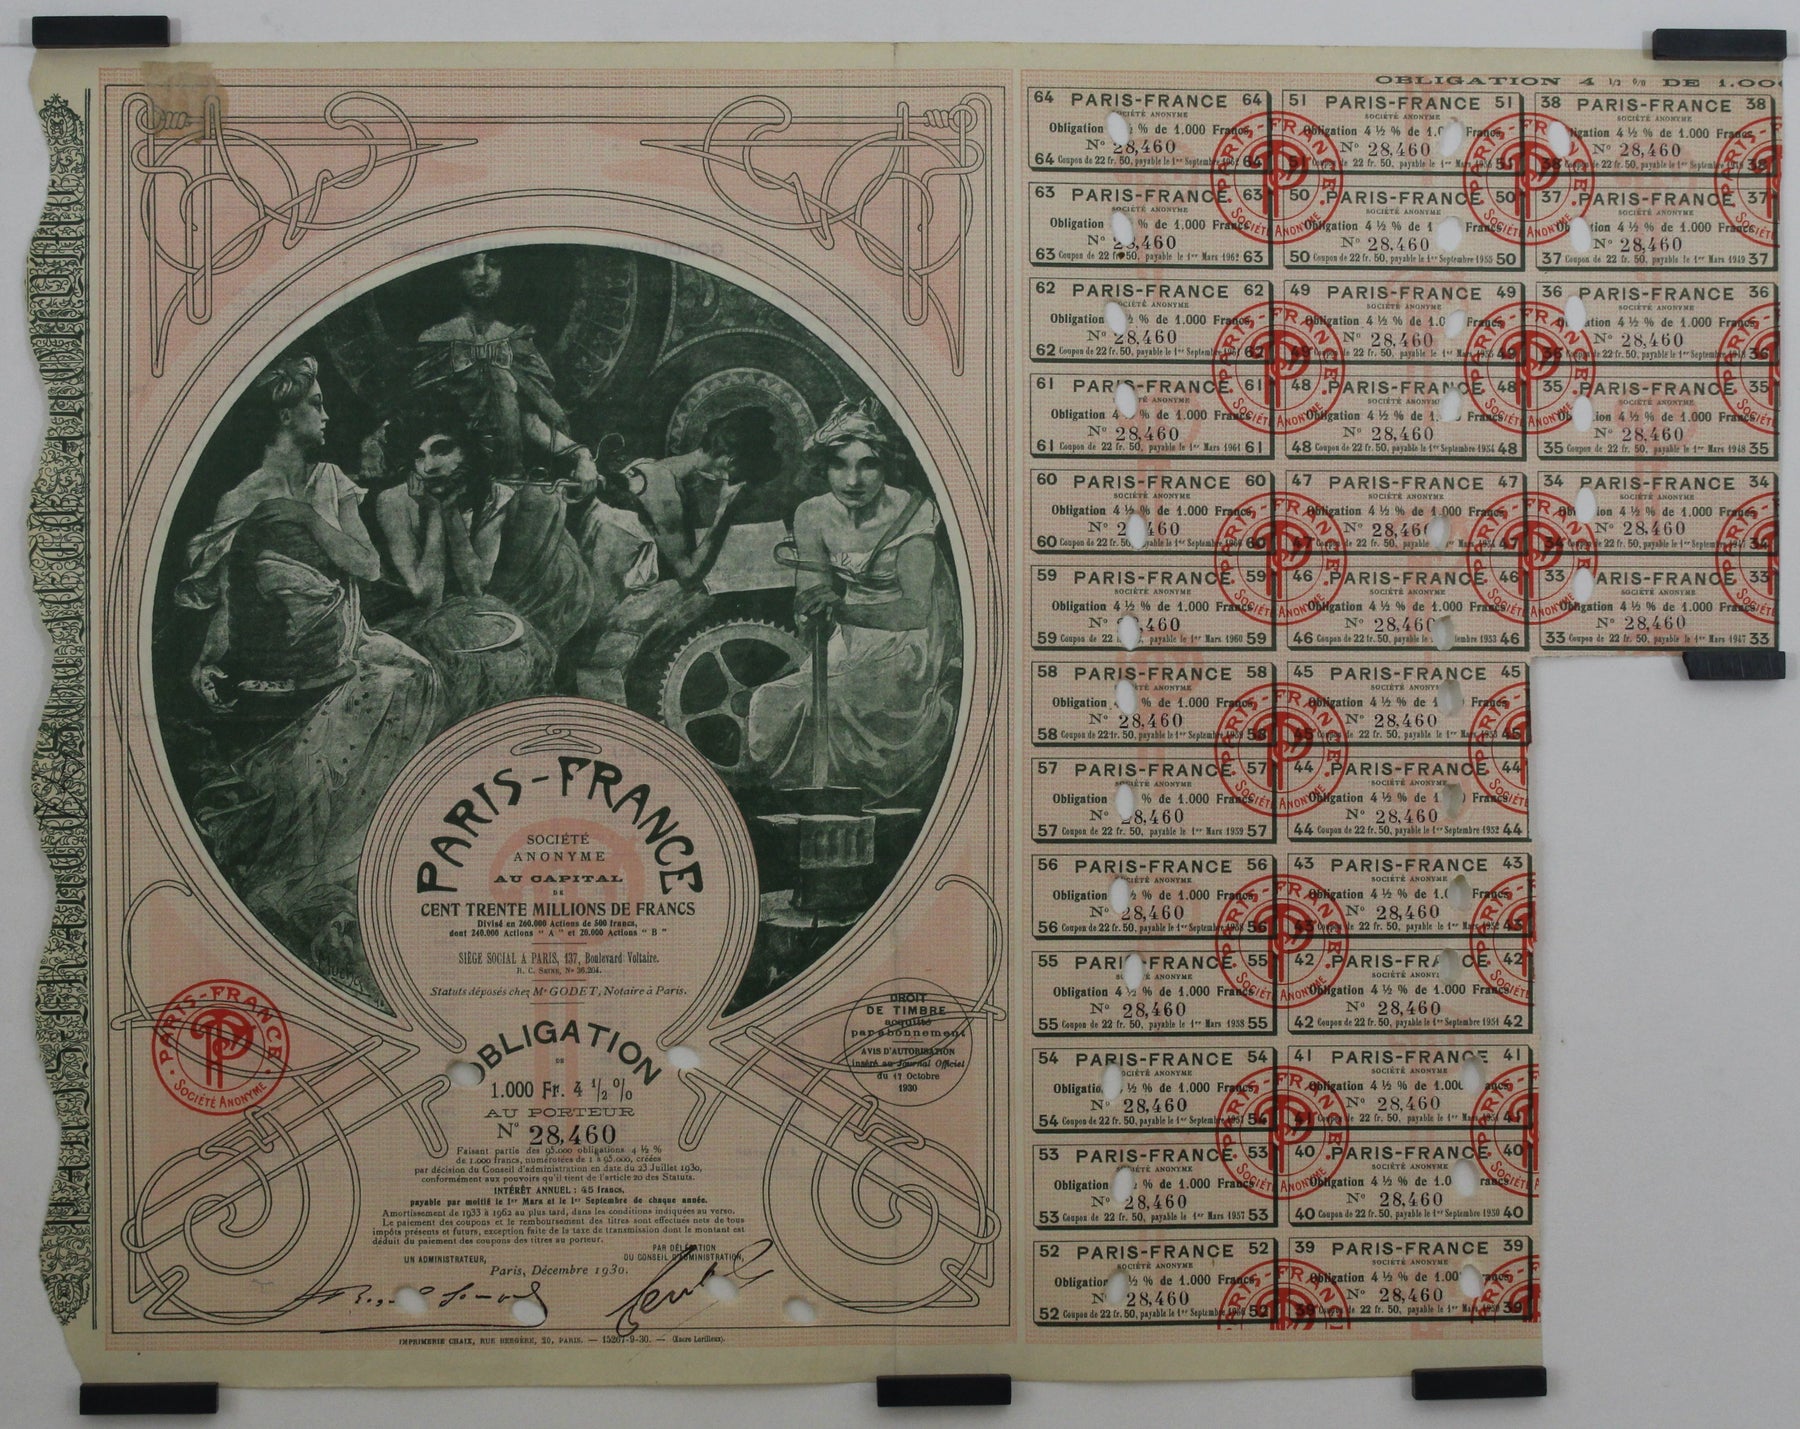 PARIS-FRANCE
SOCIÉTÉ
ANONYME
AU CAPITAL
DE
CENT TRENTE MILLIONS DE FRANCS
Divisé en 260.000 Actions de 500 francs,
dont 240.000 Actions "A" et 20.000 Actions "B"
SIÈGE SOCIAL A PARIS, 137, Boulevard Voltaire.
R. C. SEINE, N° 36.204.
Statuts déposés chez Me GODET, Notaire à Paris.
Mucha
PARIS-FRANCE
SOCIÉTÉ ANONYME
DROIT
DE TIMBRE
acquitté
par abonnement
AVIS D'AUTORISATION
inséré au Journal Officiel
du 17 Octobre
1930
OBLIGATION
DE
1.000 Fr. 4 1/2 %
AU PORTEUR
N° 28,460
Faisant partie des 95.000 obligations 4 ½ %
de 1.000 francs, numérotées de 1 à 95.000, créées
par décision du Conseil d'administration en date du 23 Juillet 1930,
conformément aux pouvoirs qu'il tient de l'article 20 des Statuts.
INTÉRÊT ANNUEL : 45 francs,
payable par moitié le 1er Mars et le 1er Septembre de chaque année.
Amortissement de 1933 à 1962 au plus tard, dans les conditions indiquées au verso.
Le paiement des coupons et le remboursement des titres sont effectués nets de tous
impôts présents et futurs, exception faite de la taxe de transmission dont le montant est
déduit du paiement des coupons des titres au porteur.
UN ADMINISTRATEUR,
PAR DÉLÉGATION
DU CONSEIL D'ADMINISTRATION,
Paris, Décembre 1930.
IMPRIMERIE CHAIX, RUE BERGÈRE, 20, PARIS. — 15267-9-30. — (Encre Lorilleux).
OBLIGATION 4 1/2 % DE 1.000
64 PARIS-FRANCE 64
SOCIÉTÉ ANONYME
Obligation ½ % de 1.000 Francs
N° 28,460
64 Coupon de 22 fr. 50, payable le 1er Septembre 64
63 PARIS-FRANCE 63
SOCIÉTÉ ANONYME
Obligation % de 1.000 Francs
N° 28,460
63 Coupon de 22 fr. 50, payable le 1er Mars 1962 63
62 PARIS-FRANCE 62
SOCIÉTÉ ANONYME
Obligation ½ % de 1.000 Francs
N° 28,460
62 Coupon de 22 fr. 50, payable le 1er Septembre 1961 62
61 PARIS-FRANCE 61
ANONYME
Obligation 4 % de 1.000 Francs
N° 28,460
61 Coupon de 22 fr. 50, payable le 1er Mars 1961 61
60 PARIS-FRANCE 60
SOCIÉTÉ ANONYME
Obligation 4 ½ % de 1.000 Francs
N° 2 ,460
60 Coupon de 22 fr. 50, payable le 1er Septembre 1960 60
59 PARIS-FRANCE 59
SOCIÉTÉ ANONYME
Obligation 4 ½ % de 1.000 Francs
N° ,460
59 Coupon de 22 50, payable le 1er Mars 1960 59
58 PARIS-FRANCE 58
ANONYME
Obligation % de 1.000 Francs
N° 28,460
58 Coupon de 22 fr. 50, payable le 1er Septembre 1959 58
57 PARIS-FRANCE 57
SOCIÉTÉ ANONYME
Obligation % de 1.000 Francs
N° 28,460
57 Coupon de 22 fr. 50, payable le 1er Mars 1959 57
56 PARIS-FRANCE 56
SOCIÉTÉ ANONYME
Obligation ½ % de 1.000 Francs
N° 28,460
56 Coupon de 22 fr. 50, payable le 1er Septembre 1958 56
55 PARIS-FRANCE 55
ANONYME
Obligation 4 ½ % de 1.000 Francs
N° 28,460
55 Coupon de 22 fr. 50, payable le 1er Mars 1958 55
54 PARIS-FRANCE 54
SOCIÉTÉ ANONYME
Obligation ½ % de 1.000 Francs
N° 28,460
54 Coupon de 22 fr. 50, payable le 1er Septembre 1957 54
53 PARIS-FRANCE 53
SOCIÉTÉ ANONYME
Obligation % de 1.000 Francs
N° 28,460
53 Coupon de 22 fr. 50, payable le 1er Mars 1957 53
52 PARIS-FRANCE 52
SOCIÉTÉ ANONYME
Obligation ½ % de 1.000 Francs
N° 28,460
52 Coupon de 22 fr. 50, payable le 1er Septembre 1956 52
51 PARIS-FRANCE 51
SOCIÉTÉ ANONYME
Obligation 4 ½ % de 1.0 Francs
N° 28,460
51 Coupon de 22 fr. 50, payable le 1er Mars 51
50 PARIS-FRANCE 50
SOCIÉTÉ ANONYME
Obligation 4 ½ % de 1 Francs
N° 28,460
50 Coupon de 22 fr. 50, payable le 1er Septembre 1955 50
49 PARIS-FRANCE 49
SOCIÉTÉ ANONYME
Obligation 4 ½ % de 1.0 Francs
N° 28,460
49 Coupon de 22 fr. 50, payable le 1er Mars 1955 49
48 PARIS-FRANCE 48
SOCIÉTÉ ANONYME
Obligation 4 ½ % de 1. Francs
N° 28,460
48 Coupon de 22 fr. 50, payable le 1er Septembre 1954 48
47 PARIS-FRANCE 47
SOCIÉTÉ ANONYME
Obligation 4 ½ % de 1.000 Francs
N° 28,460
47 Coupon de 22 fr. 50, payable 1954 47
46 PARIS-FRANCE 46
SOCIÉTÉ ANONYME
Obligation 4 ½ % de 1.000 Francs
N° 28,460
46 Coupon de 22 fr. 50, payable le 1953 46
45 PARIS-FRANCE 45
SOCIÉTÉ ANONYME
Obligation 4 ½ % de Francs
N° 28,460
45 Coupon de 22 fr. 50, payable le 1er Mars 1953 45
44 PARIS-FRANCE 44
SOCIÉTÉ ANONYME
Obligation 4 ½ % de 1 Francs
N° 28,460
44 Coupon de 22 fr. 50, payable le 1er Septembre 1952 44
43 PARIS-FRANCE 43
SOCIÉTÉ ANONYME
Obligation 4 ½ % de 1.0 Francs
N° 28,460
43 Coupon de 22 fr. 50, payable le 1er Mars 1952 43
42 PARIS-FRANCE 42
SOCIÉTÉ ANONYME
Obligation 4 ½ % de 1.000 Francs
N° 28,460
42 Coupon de 22 fr. 50, payable le 1er Septembre 1951 42
41 PARIS-FRANCE 41
SOCIÉTÉ ANONYME
Obligation 4 ½ % de 1.000
N° 28,460
41 Coupon de 22 fr. 50, payable le 1er Mars 1951 41
40 PARIS-FRANCE 40
SOCIÉTÉ ANONYME
Obligation 4 ½ % de 1.0 Francs
N° 28,460
40 Coupon de 22 fr. 50, payable le 1er Septembre 1950 40
39 PARIS-FRANCE 39
SOCIÉTÉ ANONYME
Obligation 4 ½ % de 1.00 Francs
N° 28,460
39 Coupon de 22 fr. 50, payable le 1er Mars 1950 39
38 PARIS-FRANCE 38
SOCIÉTÉ ANONYME
Obligation 4 ½ % de 1.000 Francs
N° 28,460
38 Coupon de 22 fr. 50, payable le 1er Septembre 38
37 PARIS-FRANCE 37
SOCIÉTÉ ANONYME
4 ½ % de 1.000 Francs
N° 28,460
37 Coupon de 22 fr. 50, payable le 1er Mars 1949 37
36 PARIS-FRANCE 36
SOCIÉTÉ ANONYME
4 ½ % de 1.000 Francs
N° 28,460
36 Coupon de 22 fr. 50, payable le 1er Septembre 1948 36
35 PARIS-FRANCE 35
SOCIÉTÉ ANONYME
4 ½ % de 1.000 Francs
N° 28,460
35 Coupon de 22 fr. 50, payable le 1er Mars 1948 35
34 PARIS-FRANCE 34
SOCIÉTÉ ANONYME
4 ½ % de 1.000 Francs
N° 28,460
34 Coupon de 22 fr. 50, payable le 1er Septembre 1947 34
33 PARIS-FRANCE 33
SOCIÉTÉ ANONYME
Obligation 4 ½ % de 1.000 Francs
N° 28,460
33 Coupon de 22 fr. 50, payable le 1er Mars 1947 33